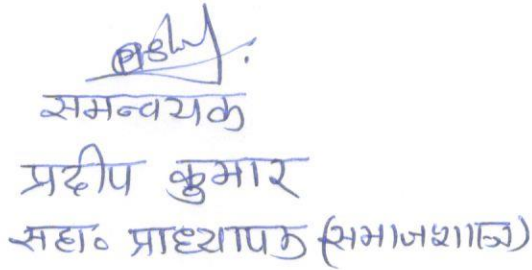 समन्वयक
प्रदीप कुमार
सहा० प्राध्यापक (समाजशास्त्र)